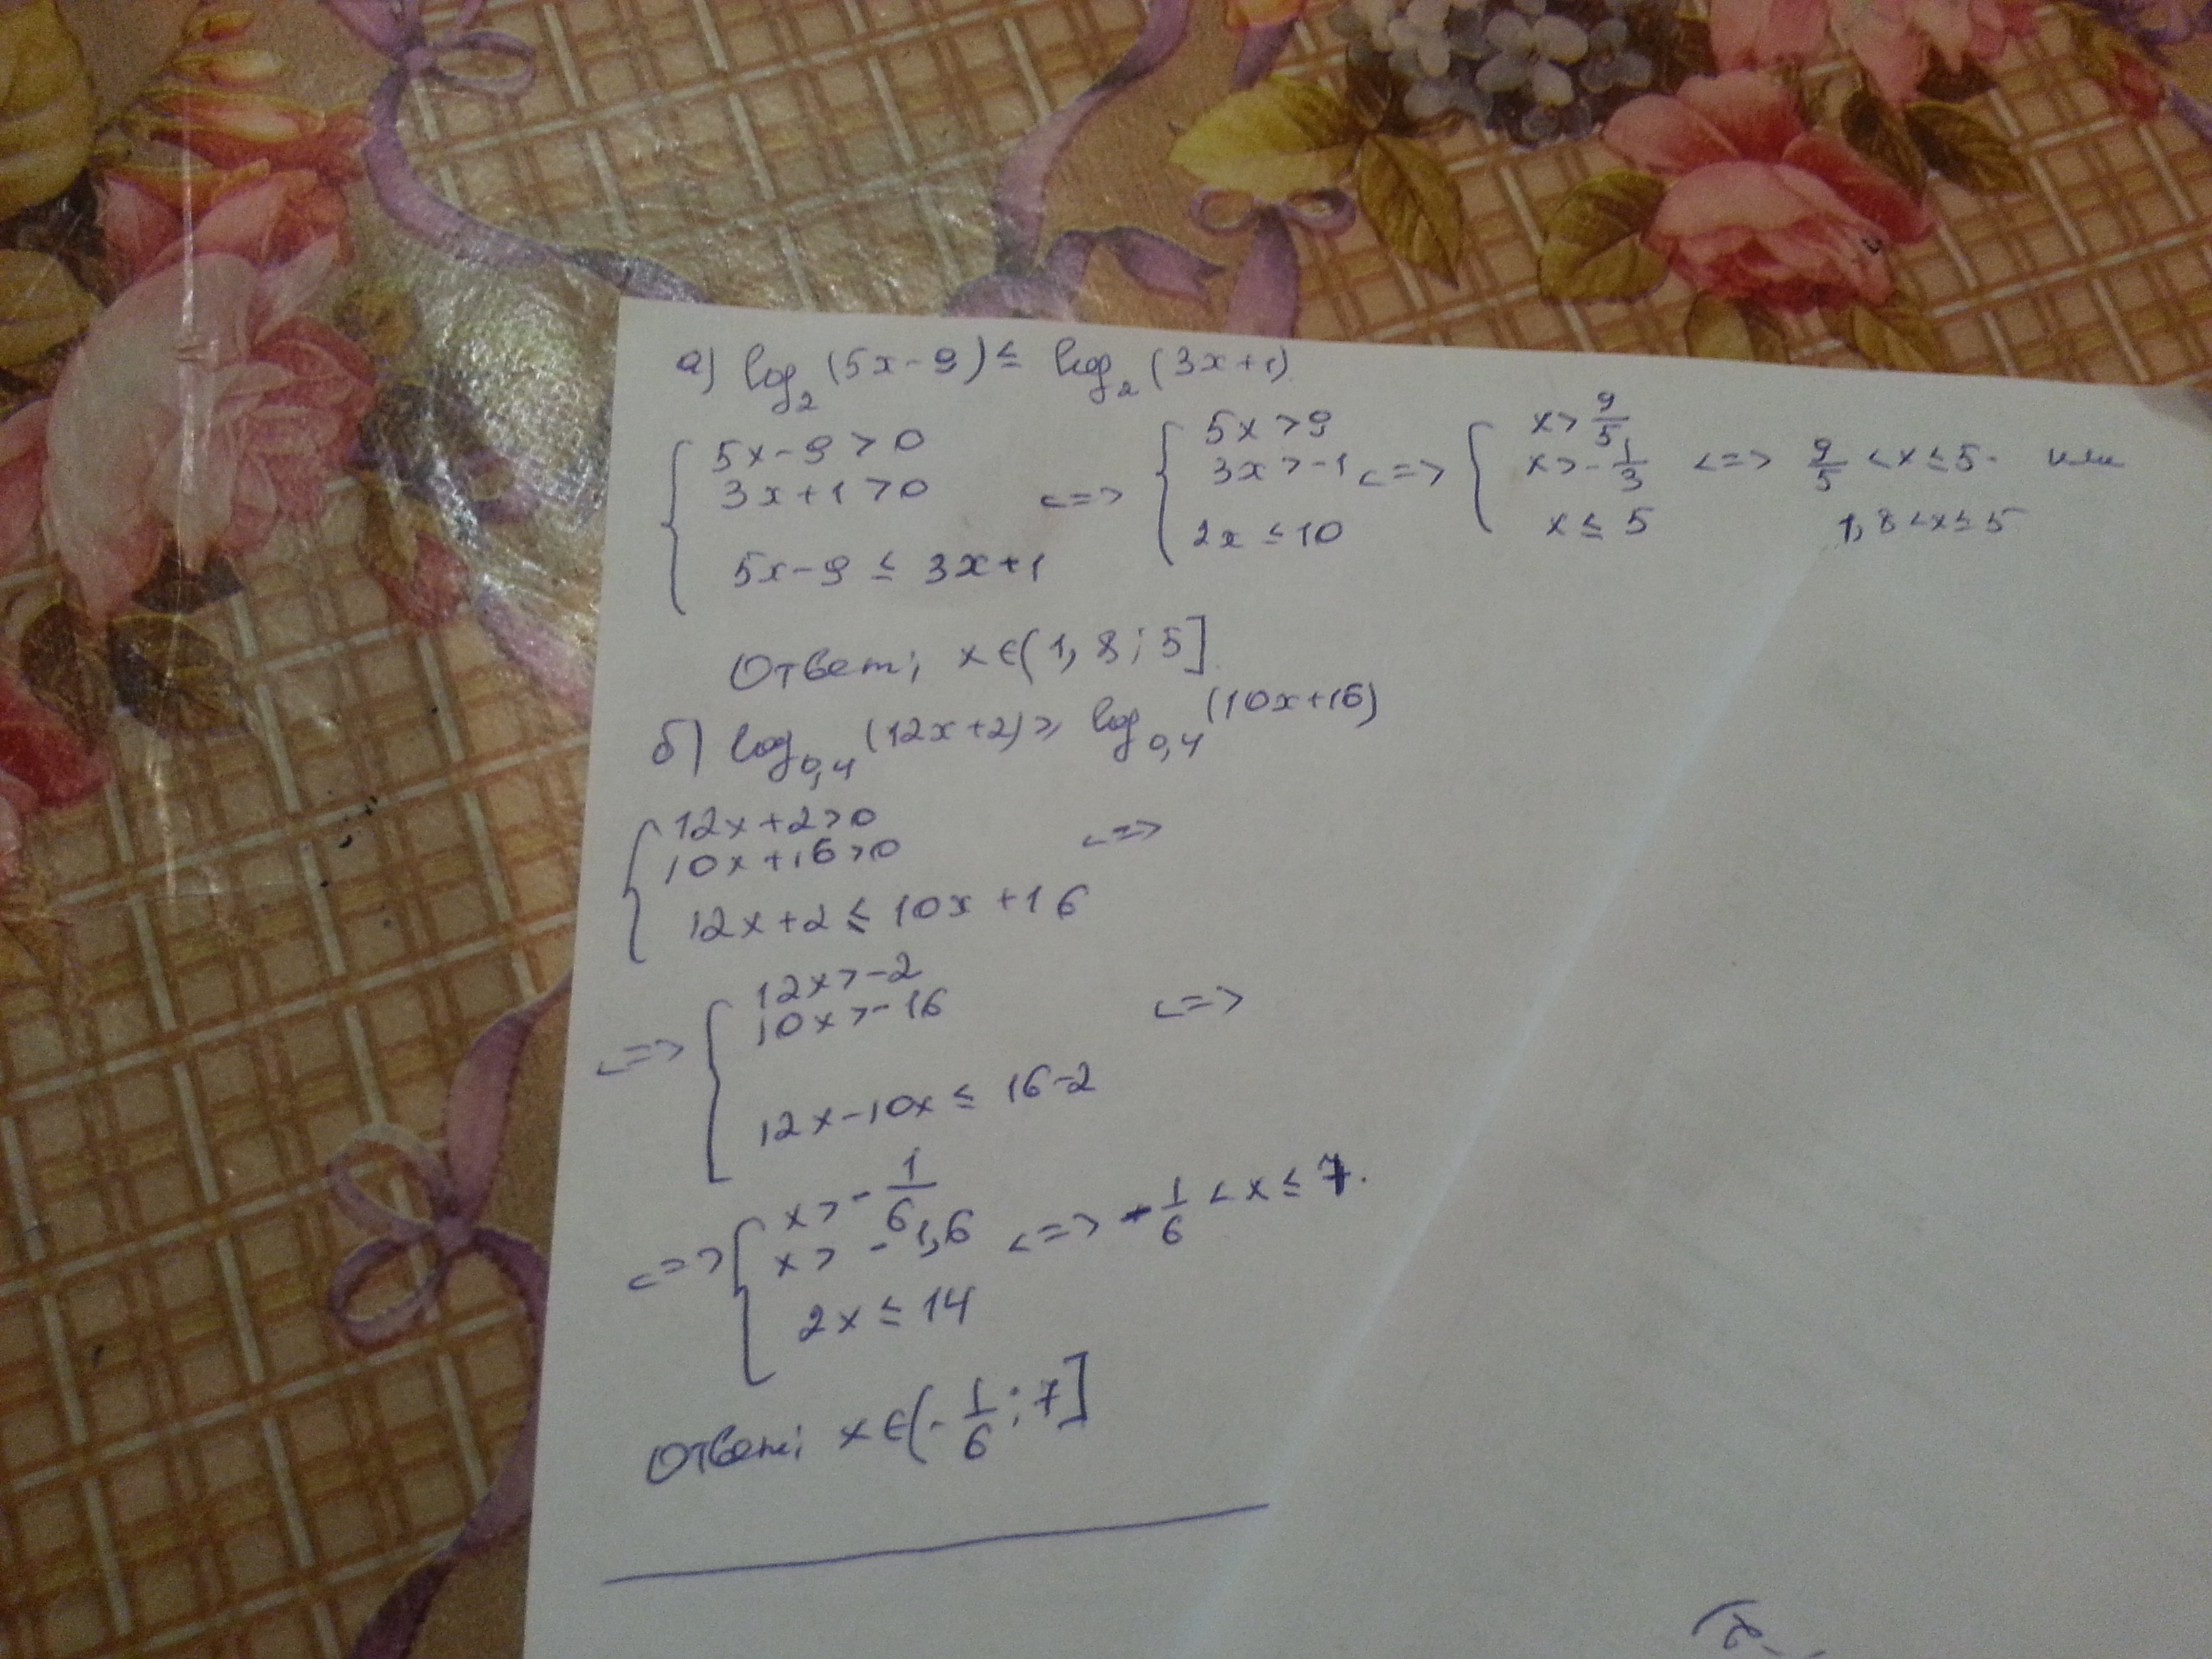 а) log₂(5x-9) ≤ log₂(3x+1)
{ 5x-9>0
3x+1>0
5x-9 ≤ 3x+1
<=> { 5x>9
3x>-1
2x≤10
<=> { x> 9/5
x>-1/3
x≤5
<=> 9/5 <x≤5. или
1,8<x≤5
Ответ; x∈(1,8; 5]
б) log₀,₄(12x+2)≥ log₀,₄(10x+16)
{ 12x+2>0
10x+16>0
12x+2 ≤ 10x+16
<=>
<=> { 12x>-2
10x>-16
12x-10x ≤ 16-2
<=>
<=> { x>-1/6
x> -1,6
2x ≤ 14
<=> -1/6 <x ≤ 7.
Ответ; x∈(-1/6; 7]